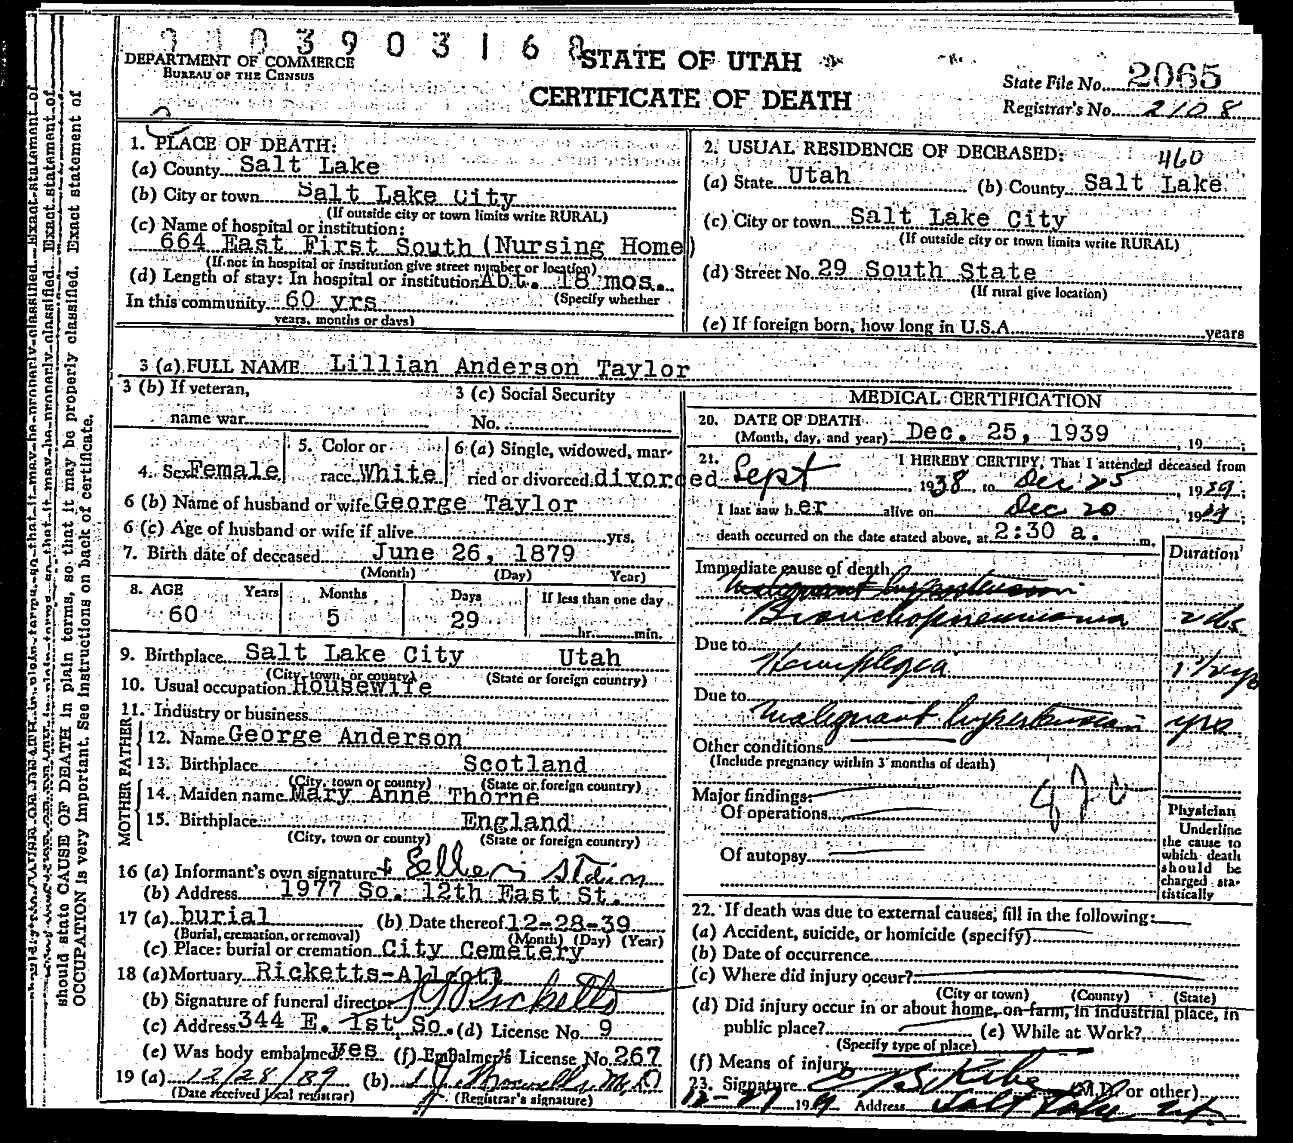 9103903168
DEPARTMENT OF COMMERCE
BUREAU OF THE CENSUS
STATE OF UTAH
CERTIFICATE OF DEATH
State File No. 2065
Registrar's No. 2108
1. PLACE OF DEATH:
(a) County Salt Lake
(b) City or town Salt Lake City
(If outside city or town limits write RURAL)
(c) Name of hospital or institution:
664 East First South (Nursing Home)
(If not in hospital or institution give street number or location)
(d) Length of stay: In hospital or institution Abt. 18 mos.
(Specify whether
In this community 60 yrs
years, months or days)
2. USUAL RESIDENCE OF DECEASED: 460
(a) State Utah (b) County Salt Lake
(c) City or town Salt Lake City
(If outside city or town limits write RURAL)
(d) Street No. 29 South State
(If rural give location)
(e) If foreign born, how long in U.S.A. years
3 (a) FULL NAME Lillian Anderson Taylor
3 (b) If veteran,
name war
3 (c) Social Security
No.
4. Sex Female
5. Color or
race White
6 (a) Single, widowed, mar-
ried or divorced divorced
6 (b) Name of husband or wife George Taylor
6 (c) Age of husband or wife if alive yrs.
7. Birth date of deceased June 26, 1879
(Month) (Day) Year)
8. AGE Years Months Days If less than one day
60 5 29 hr. min.
9. Birthplace Salt Lake City Utah
(City, town, or county) (State or foreign country)
10. Usual occupation Housewife
11. Industry or business
FATHER
12. Name George Anderson
13. Birthplace Scotland
(City, town or county) (State or foreign country)
MOTHER
14. Maiden name Mary Anne Thorne
15. Birthplace England
(City, town or county) (State or foreign country)
16 (a) Informant's own signature
(b) Address 1977 So. 12th East St.
17 (a) burial (b) Date thereof 12-28-39
(Burial, cremation, or removal) (Month) (Day) (Year)
(c) Place: burial or cremation City Cemetery
18 (a) Mortuary Ricketts-Allcott
(b) Signature of funeral director Ricketts
(c) Address 344 E. 1st So. (d) License No. 9
(e) Was body embalmed yes (f) Embalmer's License No. 267
19 (a) 12/28/39 (b) M.D.
(Date received local registrar) (Registrar's signature)
MEDICAL CERTIFICATION
20. DATE OF DEATH
(Month, day, and year) Dec. 25, 1939, 19
21. I HEREBY CERTIFY, That I attended deceased from
Sept, 1938, to Dec 25, 1939;
I last saw her alive on Dec 20, 1939;
death occurred on the date stated above, at 2:30 a. m.
Immediate cause of death Duration
Malignant hypertension
Bronchopneumonia
Due to
Hemiplegia 1 1/2 yrs
Due to
Malignant hypertension yrs
Other conditions
(Include pregnancy within 3 months of death)
Major findings:
Of operations
Of autopsy
Physician
Underline
the cause to
which death
should be
charged sta-
tistically
22. If death was due to external causes, fill in the following:
(a) Accident, suicide, or homicide (specify)
(b) Date of occurrence
(c) Where did injury occur?
(City or town) (County) (State)
(d) Did injury occur in or about home, on farm, in industrial place, in
public place? (e) While at Work?
(Specify type of place)
(f) Means of injury
23. Signature (M.D. or other)
12-27 19 Address Salt Lake Ut.
should state CAUSE OF DEATH in plain terms, so that it may be properly classified. Exact statement of
OCCUPATION is very important. See instructions on back of certificate.